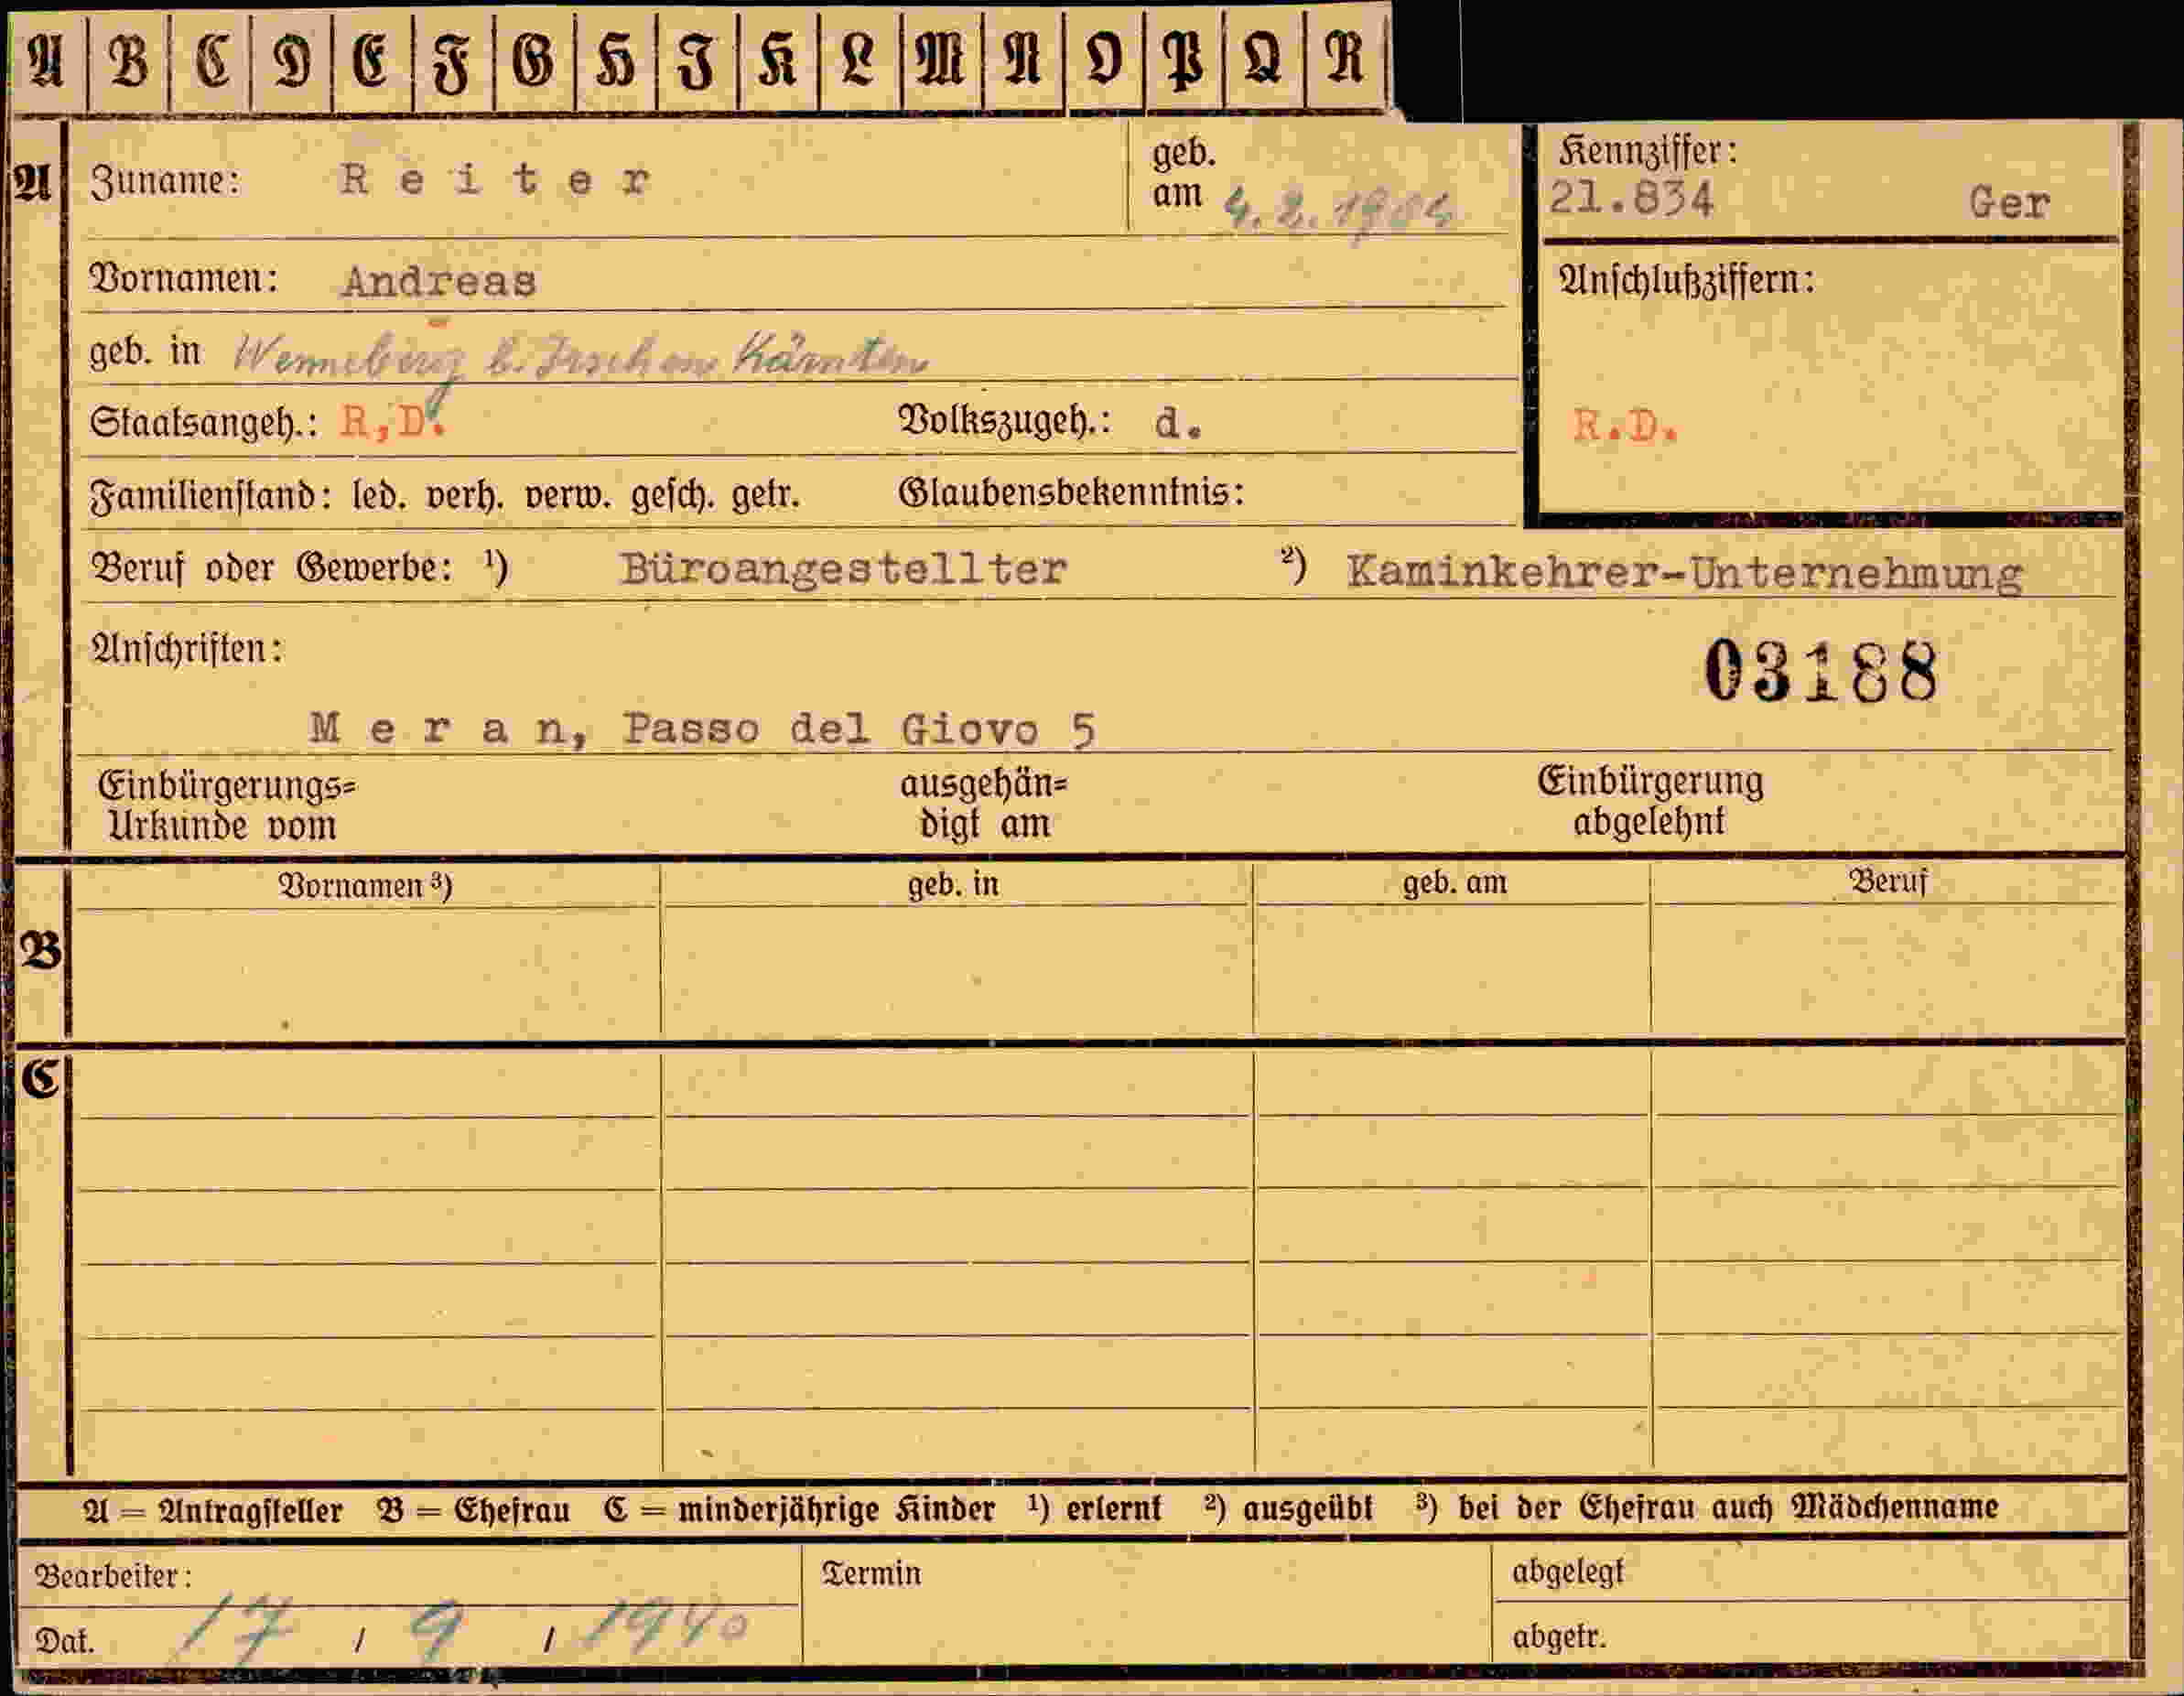 A B C D E F G H I K L M N O P Q R
A Zuname: Reiter geb. am 4.2.1904
Kennziffer:
21.834 Ger
Vornamen: Andreas
Anschlußziffern:
geb. in b. Irschen Kärnten
Staatsangeh.: R,D. Volkszugeh.: d.
R.D.
Familienstand: led. verh. verw. gesch. getr. Glaubensbekenntnis:
Beruf oder Gewerbe: ¹) Büroangestellter ²) Kaminkehrer-Unternehmung
Anschriften:
03188
Meran, Passo del Giovo 5
Einbürgerungs=
Urkunde vom
ausgehän=
digt am
Einbürgerung
abgelehnt
Vornamen ³) geb. in geb. am Beruf
B
C
A = Antragsteller B = Ehefrau C = minderjährige Kinder ¹) erlernt ²) ausgeübt ³) bei der Ehefrau auch Mädchenname
Bearbeiter:
Dat. 17 / 9 / 1940
Termin
abgelegt
abgetr.